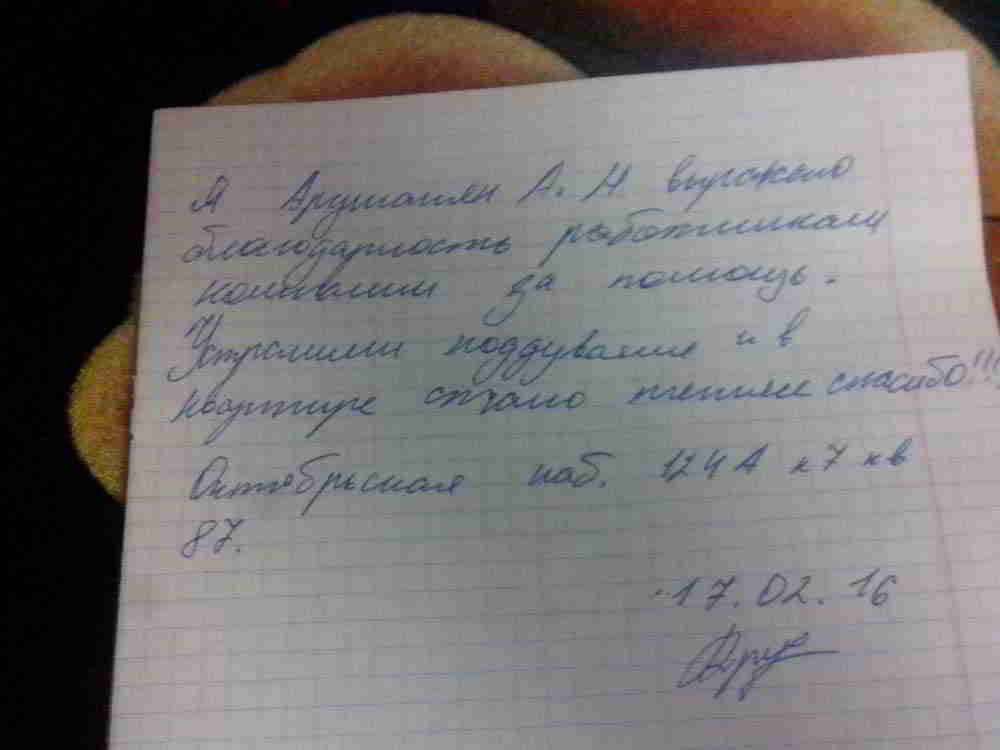 Я Арушанян А. Н выражаю
благодарность работникам
компании за помощь.
Устранили поддувание и в
квартире стало теплее спасибо!!!
Октябрьская наб. 124А к7 кв
87.
17.02.16